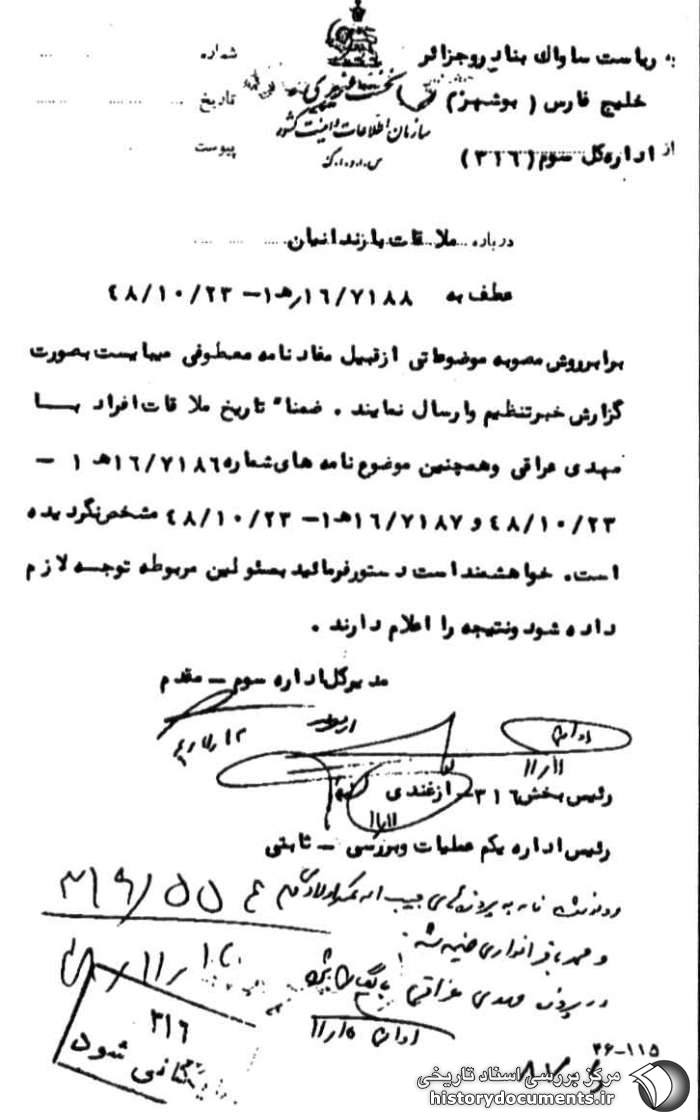 به ریاست ساواک بنادر و جزائر
خلیج فارس ( بوشهر )
از اداره کل سوم ( ۳۱۶ )
نخست وزیری
سازمان اطلاعات و امنیت کشور
س.ا.و.ا.ک
شماره
تاریخ
پیوست
درباره ملاقات با زندانیان
عطف به ۱۶/۷۱۸۸ ه‍ ۱ – ۴۸/۱۰/۲۳
برابر روش مصوبه موضوعاتی از قبیل مفاد نامه معطوفی میبایست بصورت
گزارش خبر تنظیم و ارسال نمایند . ضمنا" تاریخ ملاقات افراد بـا
مهدی عراقی و همچنین موضوع نامه های شماره ۱۶/۷۱۸۶ ه‍ ۱ –
۴۸/۱۰/۲۳ و ۱۶/۷۱۸۷ ه‍ ۱ – ۴۸/۱۰/۲۳ مشخص نگردیده
است. خواهشمند است دستور فرمائید بمسئولین مربوطه توجه لازم
داده شود و نتیجه را اعلام دارند .
مدیر کل اداره سوم – مقدم
۱۱/۱۱
رئیس بخش ۳۱۶ – ازغندی
رئیس اداره یکم عملیات و بررسی – ثابتی
و محمد باقر
در پرونده مهدی عراقی بایگانی شود
۳۱۶
بایگانی شود
۳۶-۱۱۵
مرکز بررسی اسناد تاریخی
historydocuments.ir